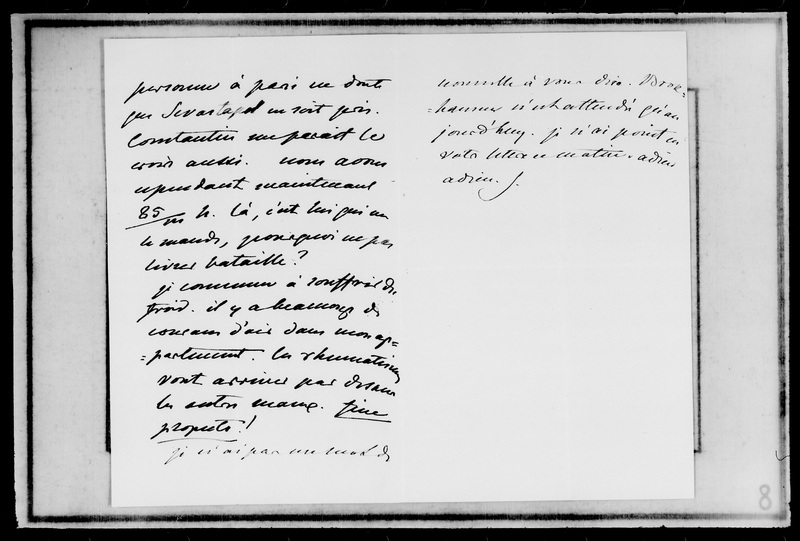 personne à paris ne doute
que Sevastopol ne soit pris.
Constantin me parait le
croire aussi. nous avons
cependant maintenant
85 m h. là, c'est lui qui me
le mande, pourquoi ne pas
livrer bataille?
je commence à souffrir du
froid. il y a beaucoup de
courans d'air dans mon ap-
=partement. les rhumatismes
vont arriver par dessus
les autres maux. fine
je n'ai pas un mot de
nouvelle à vous dire.
=hausen n'est attendu qu'au
jourd'huy. je n'ai point eu
votre lettre ce matin. adieu
adieu.
8